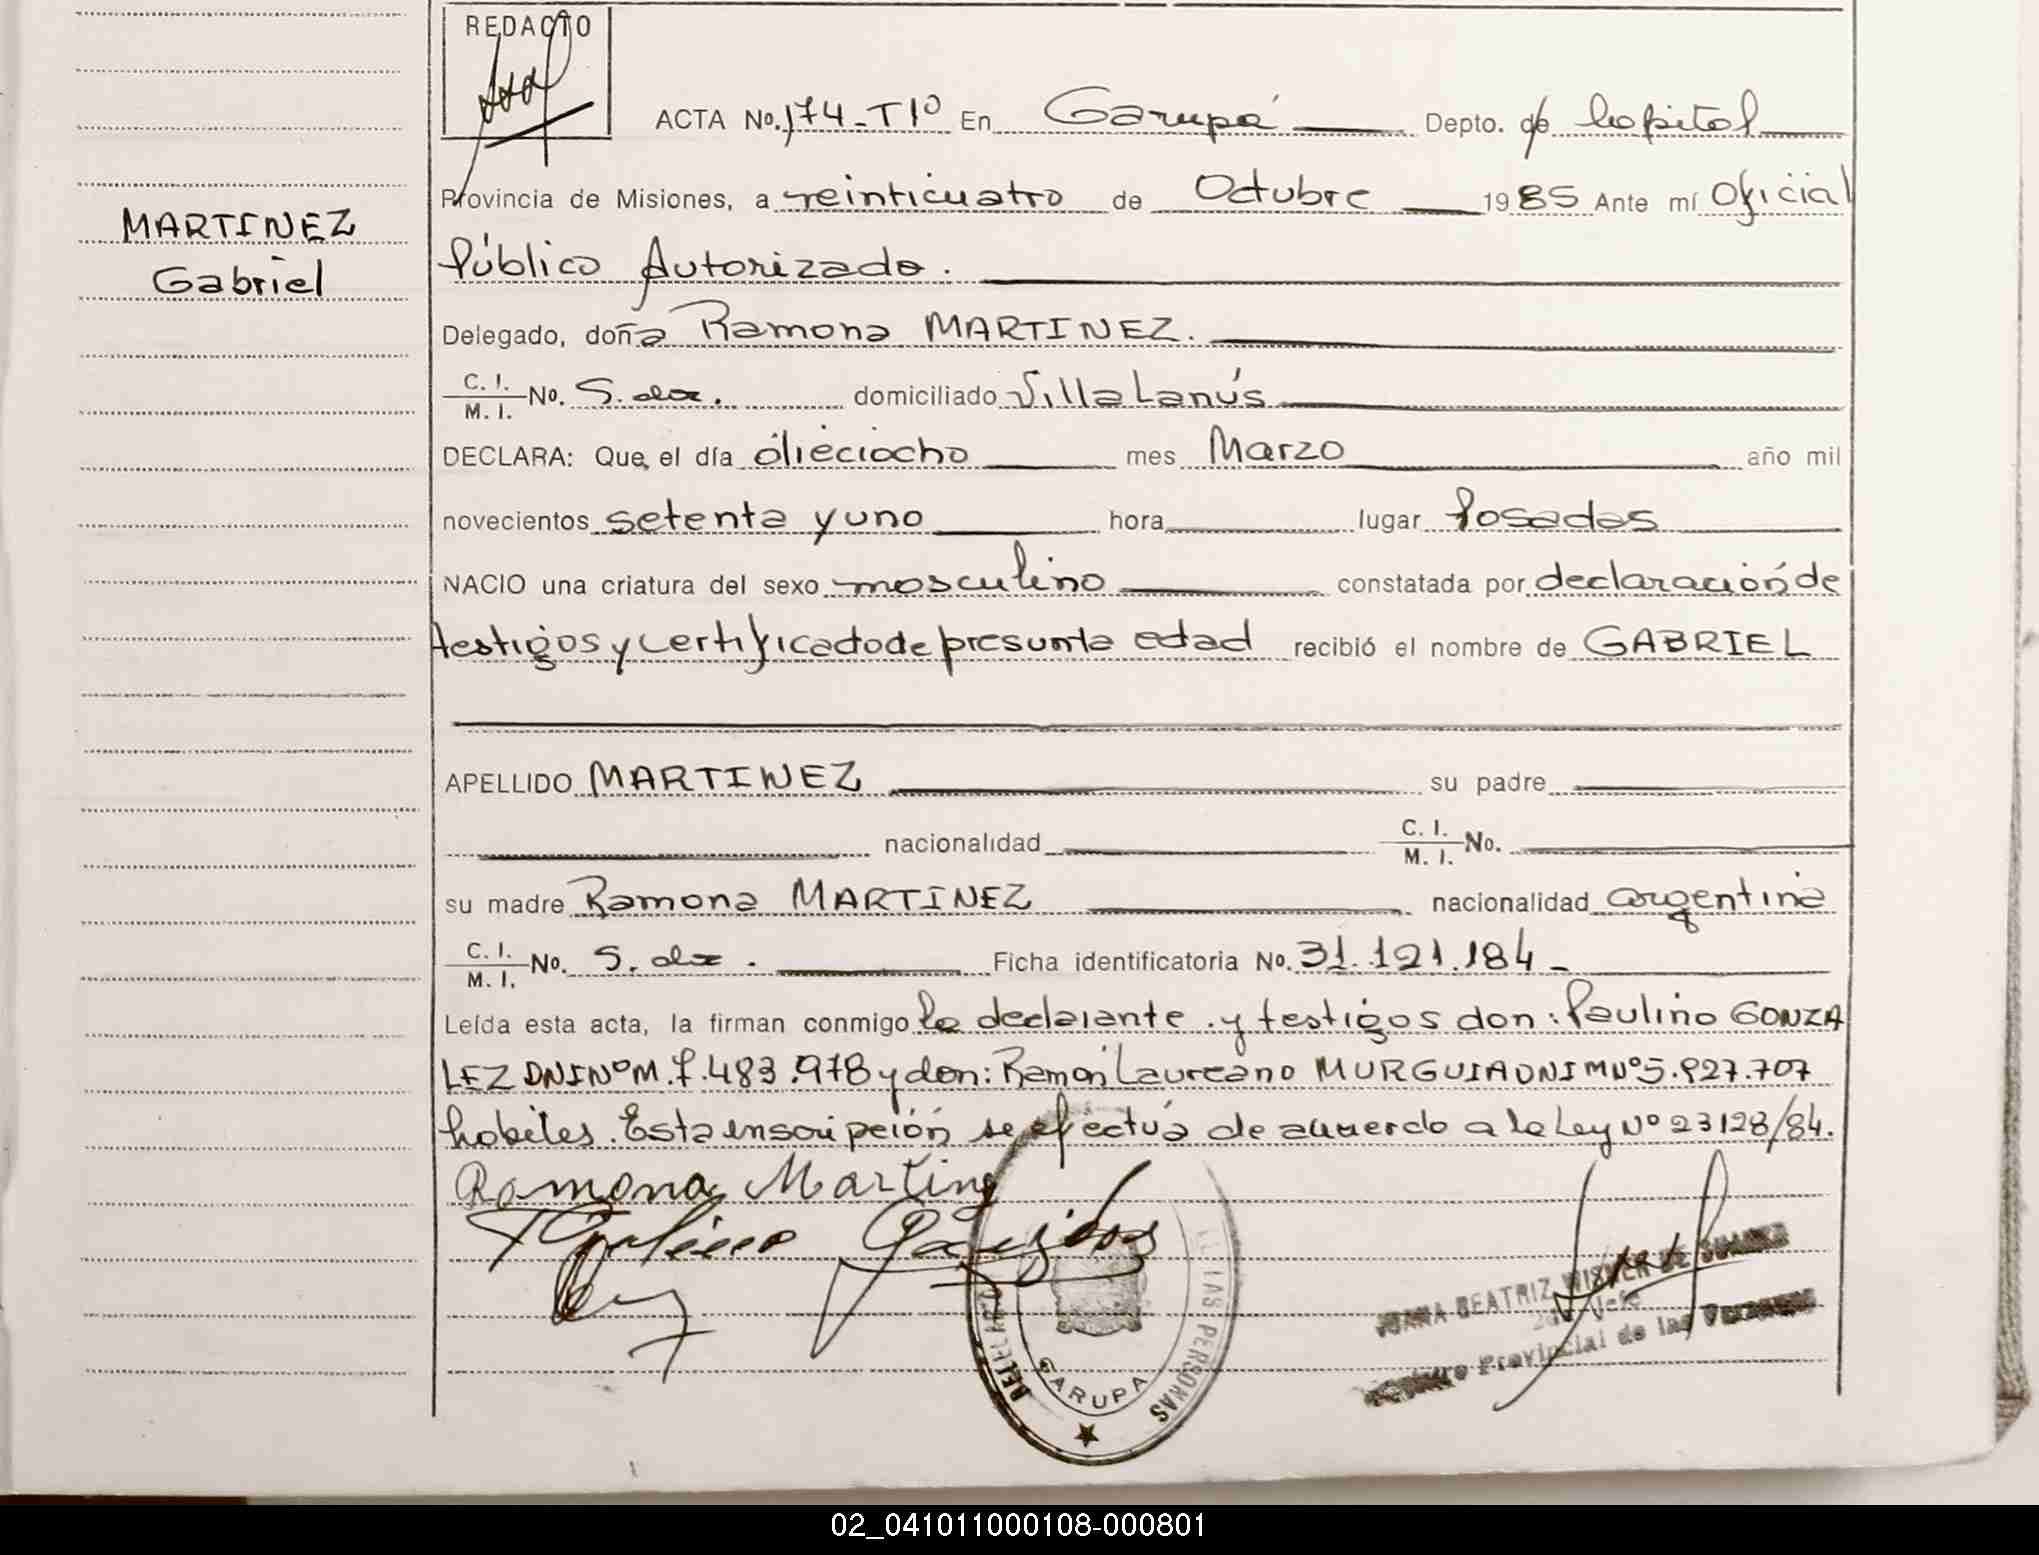 REDACTO
ACTA No. 174-T1º En Garupá Depto. de Capital
Provincia de Misiones, a veinticuatro de Octubre 1985 Ante mí Oficial
Público Autorizado.
MARTINEZ
Gabriel
Delegado, doña Ramona MARTINEZ.
C. I.
M. I. No. S. doc. domiciliado Villa Lanús
DECLARA: Que, el día dieciocho mes Marzo año mil
novecientos setenta y uno hora lugar Posadas
NACIO una criatura del sexo masculino constatada por declaración de
testigos y certificado de presunta edad recibió el nombre de GABRIEL
APELLIDO MARTINEZ su padre
nacionalidad C. I.
M. I. No.
su madre Ramona MARTINEZ nacionalidad argentina
C. I.
M. I. No. S. doc. Ficha identificatoria No. 31.121.184-
Leída esta acta, la firman conmigo la declarante y testigos don: Paulino GONZA
LEZ DNI Nº M.7.483.978 y don: Ramón Laureano MURGUIA DNI M Nº 5.927.707
hábiles. Esta inscripción se efectúa de acuerdo a la Ley Nº 23128/84.
Ramona Martine
GARUPA
LAS PERSONAS
JUANA BEATRIZ WISNER DE SUAREZ
2do Jefe
Provincial de las Personas
02_041011000108-000801